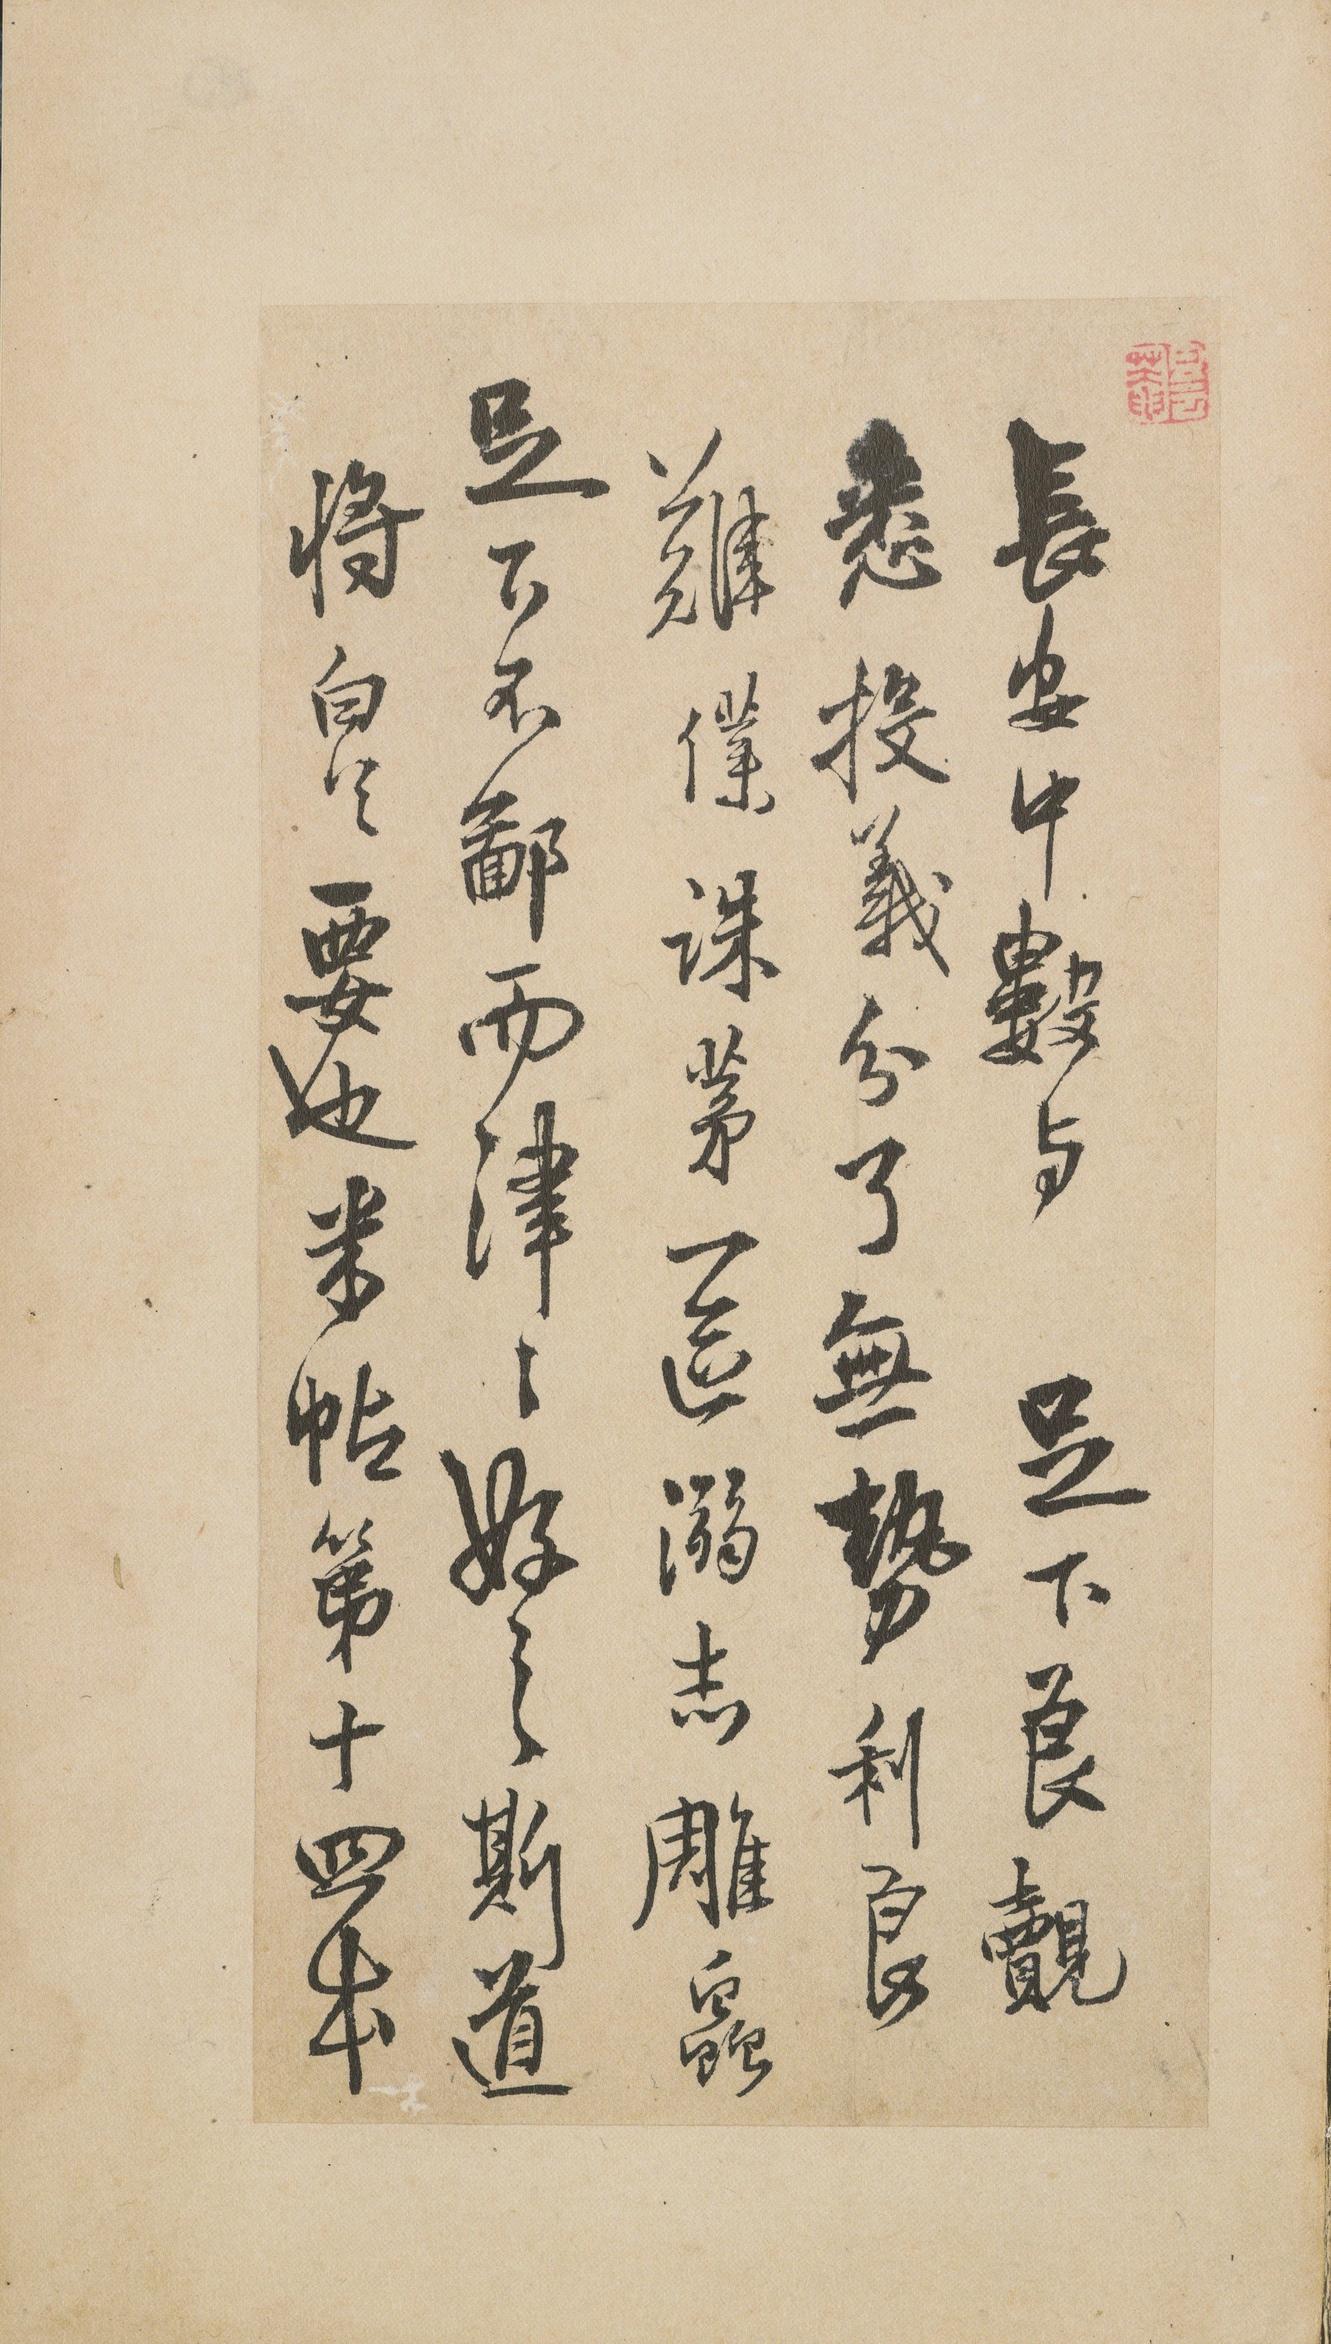 長安中數与 足下良覿
悉投義分了無勢利良
難僕誅茅一區溺志雕蟲
足下不鄙而津〻好之斯道
將白 要也米帖第十四本